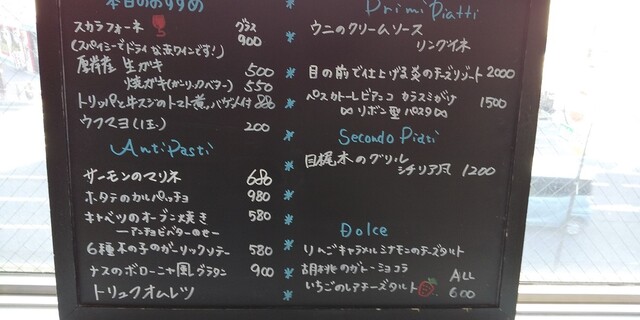 本日のおすすめ
スカラフォーネ グラス 900
(スパイシーでドライな赤ワインです!)
厚岸産 生ガキ 500
焼ガキ(ガーリックバター) 550
トリッパと牛スジのトマト煮。バゲット付 880
ウフマヨ(1玉) 200
AntiPasti
サーモンのマリネ 680
ホタテのカルパッチョ 980
キャベツのオーブン焼き 580
ーアンチョビバターのせー
6種木の子のガーリックソテー 580
ナスのボローニャ風グラタン 900
トリュフオムレツ
PrimiPiatti
ウニのクリームソース
リングイネ
目の前で仕上げる炎のチーズリゾート 2000
ペスカトーレビアンコ カラスミがけ 1500
⋈リボン型パスタ⋈
Secondo Piati
目梶木のグリル
シチリア風 1200
Dolce
りんごキャラメルシナモンのチーズタルト
胡桃のガトーショコラ ALL
いちごのレアチーズタルト 600